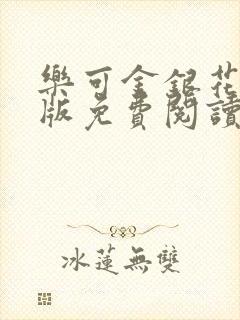 樂可金銀花
版免費閱讀
冰蓮無雙